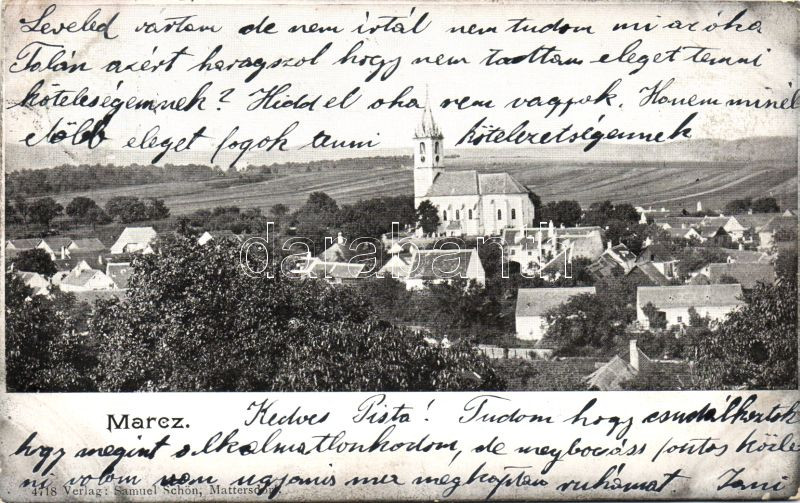 Leveled vártam de nem írtál nem tudom mi az óka
Talán azért haragszol hogy nem tettem eleget temni
kötelességemnek? Hiddel oka nem vagyok. Hanem minél
előbb eleget fogok tenni kötelezetségemnek
darabanth.com
Marcz.
Kedves Pista! Tudom hogy csudálkoztok
hogy megint alkalmatlonkodom, de megbocsáss fontos közle
ni valom van ugyanis mer megkaptam ruhámat Jani
4718 Verlag: Samuel Schön, Mattersdorf.